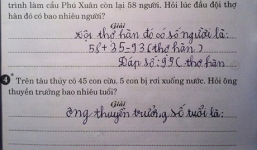 trình làm cầu Phú Xuân còn lại 58 người. Hỏi lúc đầu đội thợ
hàn đó có bao nhiêu người?
Giải
Đội thợ hàn đó có số người là:
58 + 35 = 93 (thợ hàn)
Đáp số: 93 (thợ hàn
4 Trên tàu thủy có 45 con cừu. 5 con bị rơi xuống nước. Hỏi ông
thuyền trưởng bao nhiêu tuổi?
Giải
Ông thuyền trưởng số tuổi là: